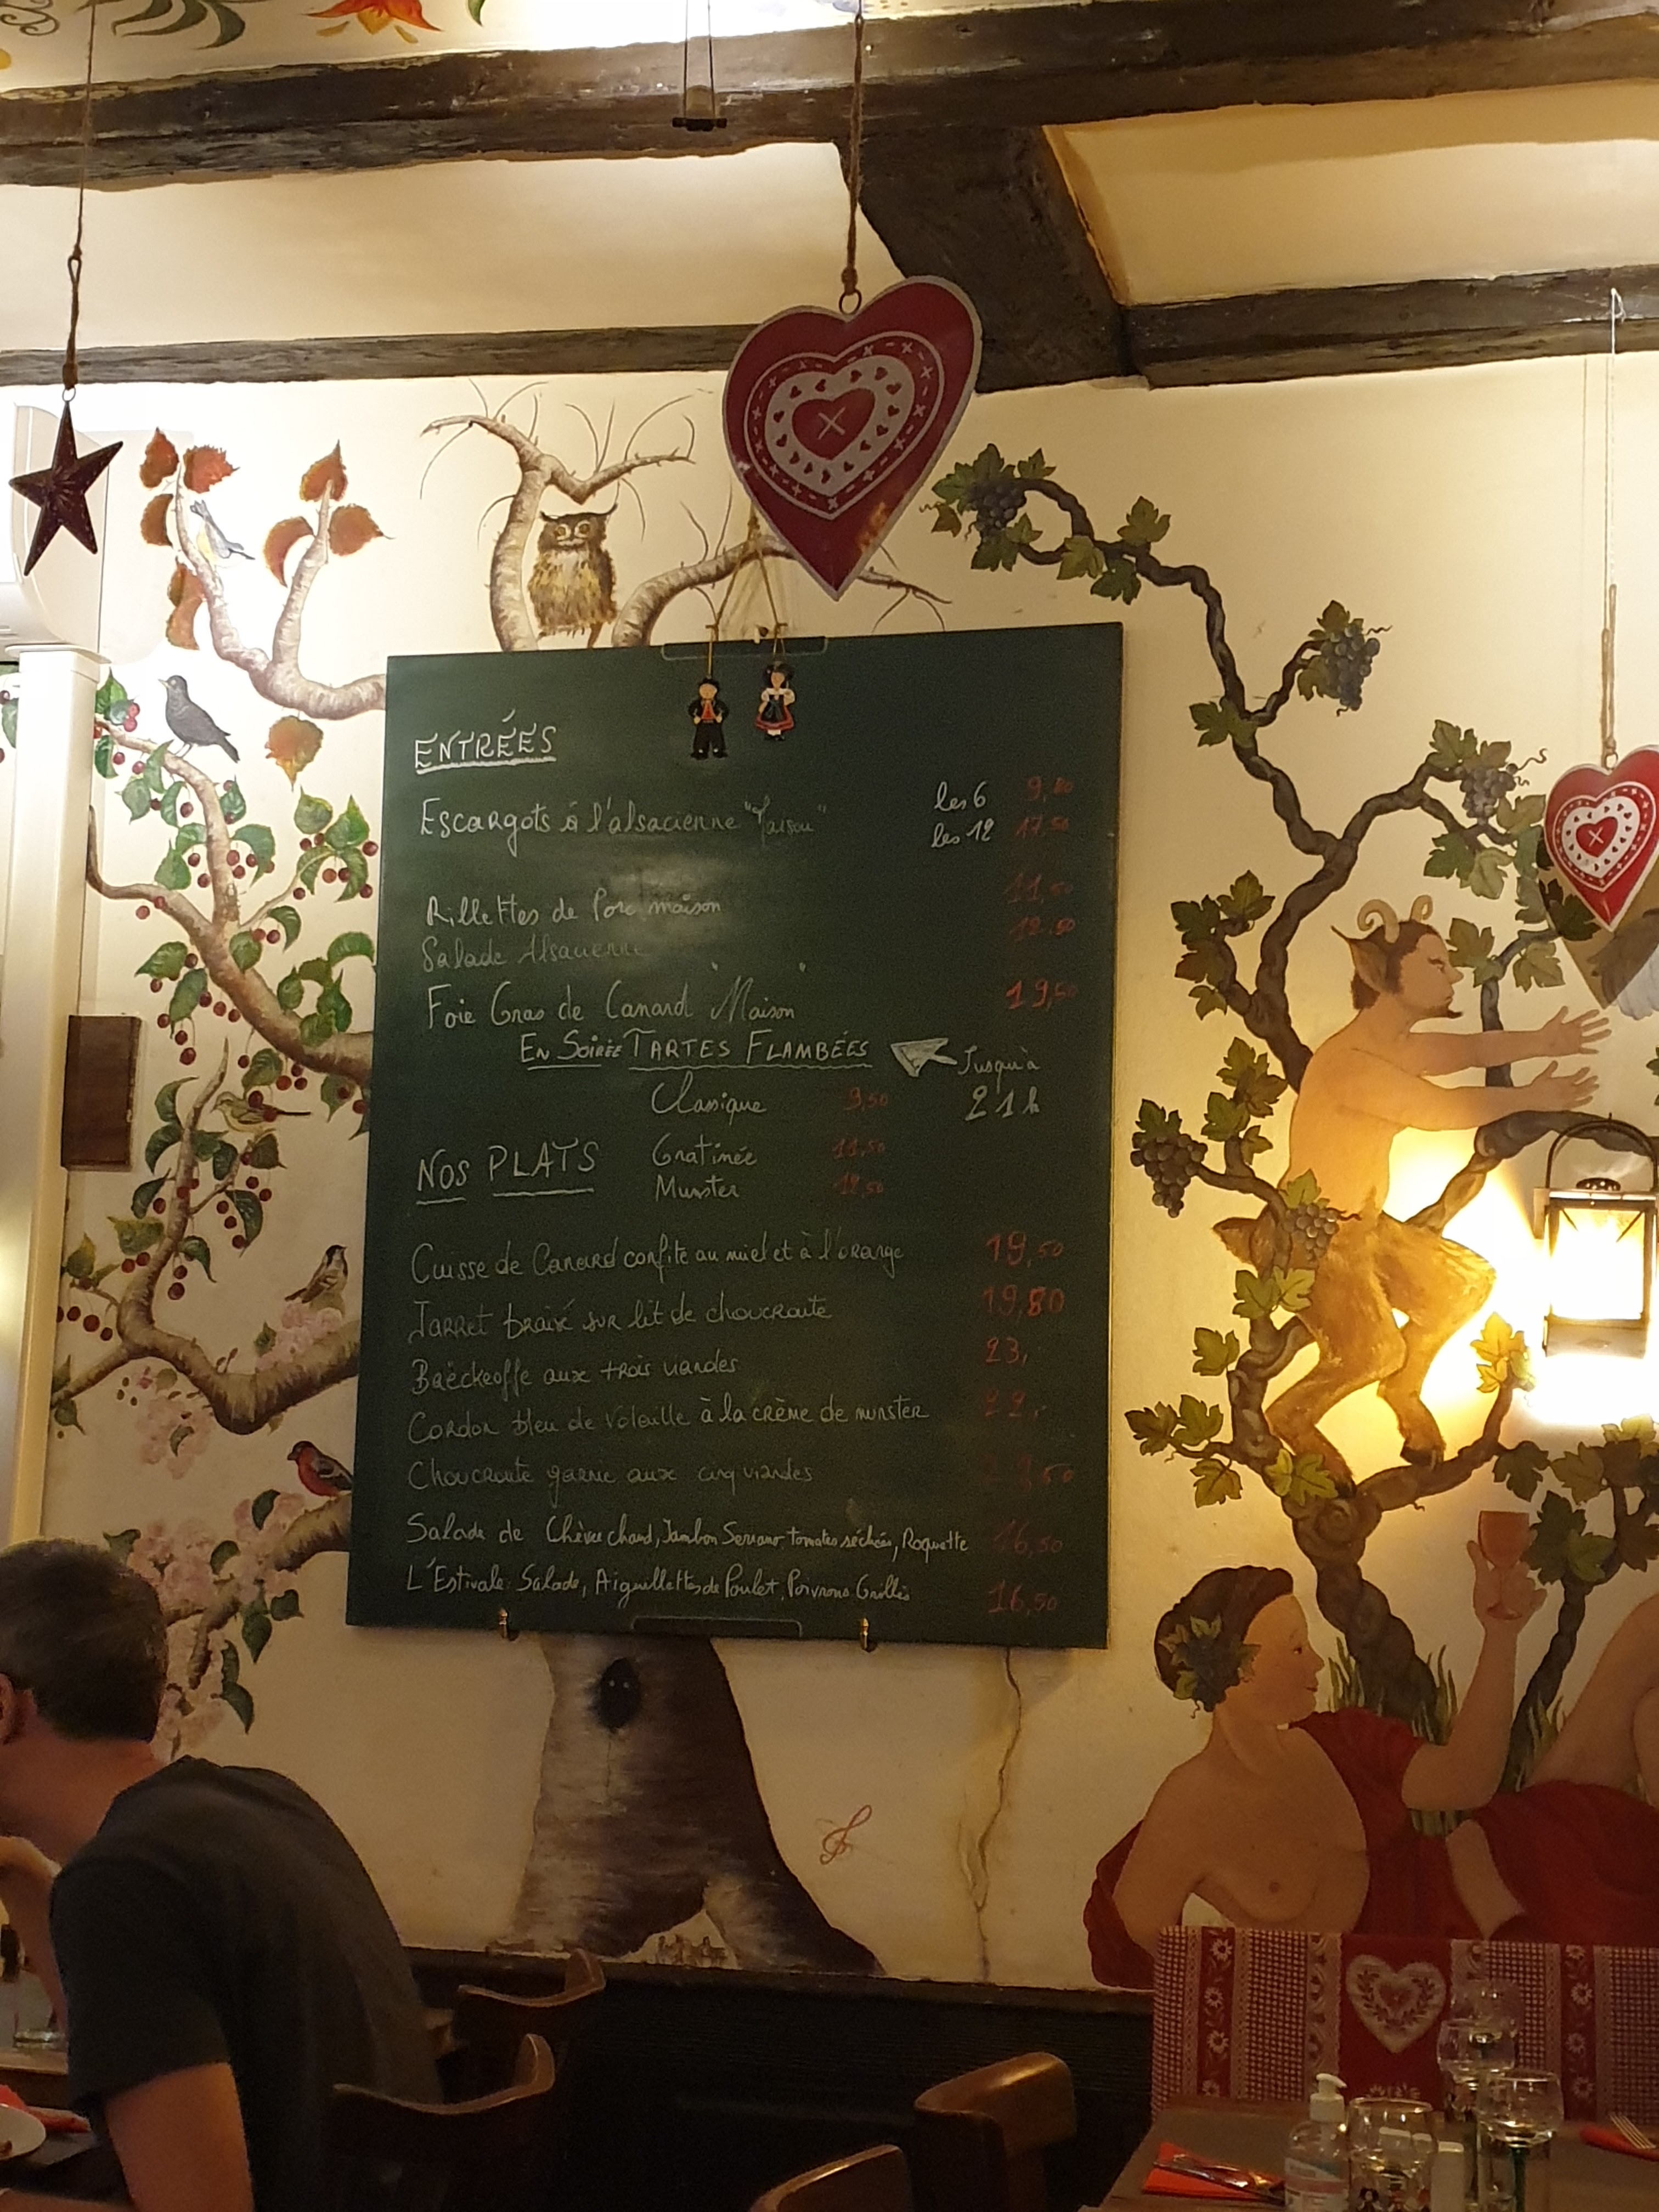 ENTRÉES
Escargots à l'alsacienne "Maison" les 6 9,80
les 12 17,50
Rillettes de Porc maison 11,50
Salade Alsacienne 12.50
Foie Gras de Canard "Maison" 19,50
EN SOIRÉE TARTES FLAMBÉES Jusqu'à
Classique 9,50 21h
NOS PLATS Gratinée 11,50
Munster 12,50
Cuisse de Canard confite au miel et à l'orange 19,50
Jarret braisé sur lit de choucroute 19,80
Baëckeoffe aux trois viandes 23,-
Cordon bleu de Volaille à la crème de munster 22,-
Choucroute garnie aux cinq viandes
Salade de Chèvre chaud, Jambon Serrano tomates séchées, Roquette 16,50
L'Estivale: Salade, Aiguillettes de Poulet, Poivrons Grillés 16,50